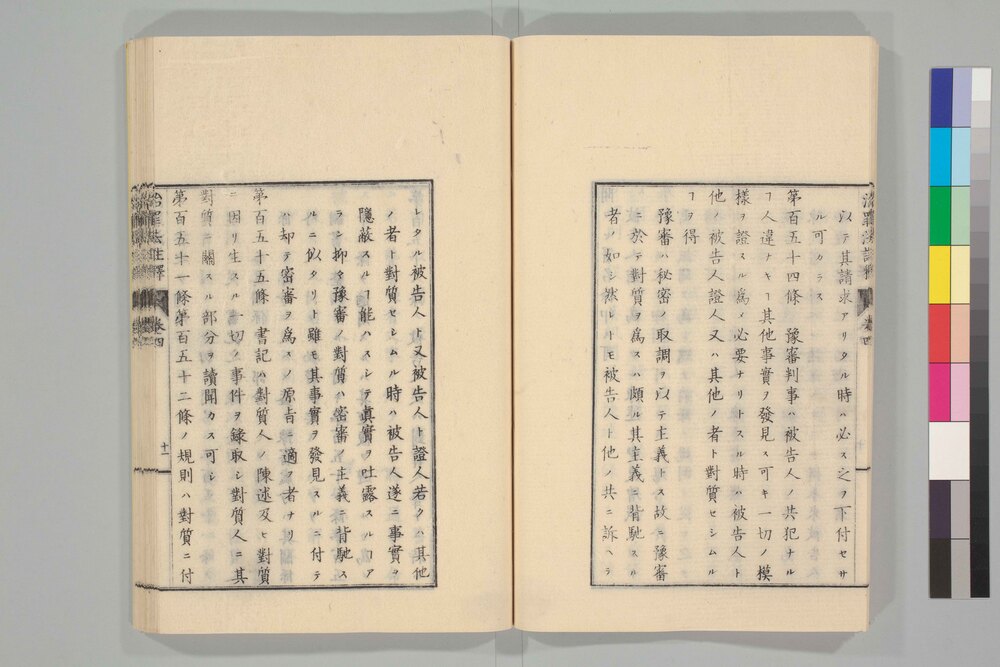 以テ其請求アリタル時ハ必ス之ヲ下付セサ
ル可カラス
第百五十四條 豫審判事ハ被告人ノ共犯ナル
ヿ人違ナキヿ其他事實ヲ發見ス可キ一切ノ模
樣ヲ證スル爲メ必要ナリトスル時ハ被告人ト
他ノ被告人證人又ハ其他ノ者ト對質セシムル
ヿヲ得
豫審ハ秘密ノ取調ヲ以テ主義トス故ニ豫審
ニ於テ對質ヲ爲スハ頗ル其主義ニ背馳スル
者ノ如シ然レトモ被告人ト他ノ共ニ訴ヘラ
レタル被告人ト又被告人ト證人若クハ其他
ノ者ト對質セシムル時ハ被告人遂ニ事實ヲ
隱蔽スルヿ能ハスシテ眞實ヲ吐露スルヿア
ラン抑々豫審ノ對質ハ密審ノ主義ニ背馳ス
ルニ似タリト雖モ其事實ヲ發見スルニ付テ
ハ却テ密審ヲ爲スノ原旨ニ適フ者ナリ
第百五十五條 書記ハ對質人ノ陳述及ヒ對質
ニ因リ生スル一切ノ事件ヲ錄取シ對質人ニ其
對質ニ關スル部分ヲ讀聞カス可シ
第百五十一條第百五十二條ノ規則ハ對質ニ付
治罪法註釋 卷四
十一